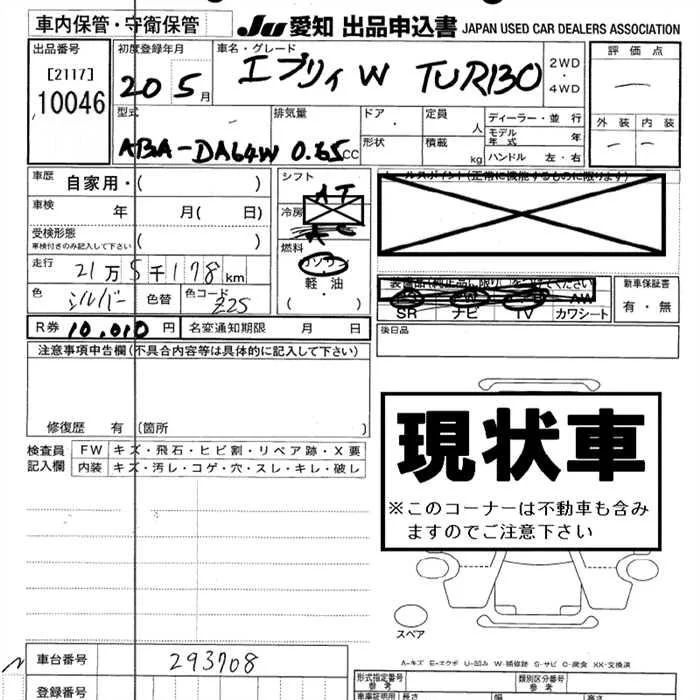 車内保管・守衛保管
JU 愛知 出品申込書 JAPAN USED CAR DEALERS ASSOCIATION
出品番号
[2117]
10046
初度登録年月
20 5月
車名・グレード
エブリィ W TURBO
2WD
・
4WD
評価点
―
外装 内装
― ―
型式
ABA-DA64W
排気量
0.65CC
ドア
・
定員
人
形状
積載
kg
ディーラー・並行
モデル年式 年
ハンドル 左・右
車歴 自家用・( )
車検 年 月( 日)
受検形態
車検付きのみ記入して下さい ( )
走行 21万5千178km
色 シルバー 色替 色コード Z2S
R券 10,010円 名変通知期限 月 日
シフト
AT
冷房
AC
燃料
ガソリン
・
軽油
( ・ )
セールスポイント(正常に機能するものに限ります)
AW
SR ナビ TV カワシート
新車保証書
有・無
後日品
注意事項申告欄(不具合内容等は具体的に記入して下さい)
修復歴 有(箇所 )
検査員記入欄
FW キズ・飛石・ヒビ割・リペア跡・X要
内装 キズ・汚レ・コゲ・穴・スレ・キレ・破レ
現状車
※このコーナーは不動車も含み
ますのでご注意下さい
スペア
A-キズ E-エクボ U-凹み W-補修跡 S-サビ C-腐食 XX-交換済
車台番号 293708
登録番号
形式指定番号
参考
類別区分番号
参考
車庫証明用 長さ 幅 高さ